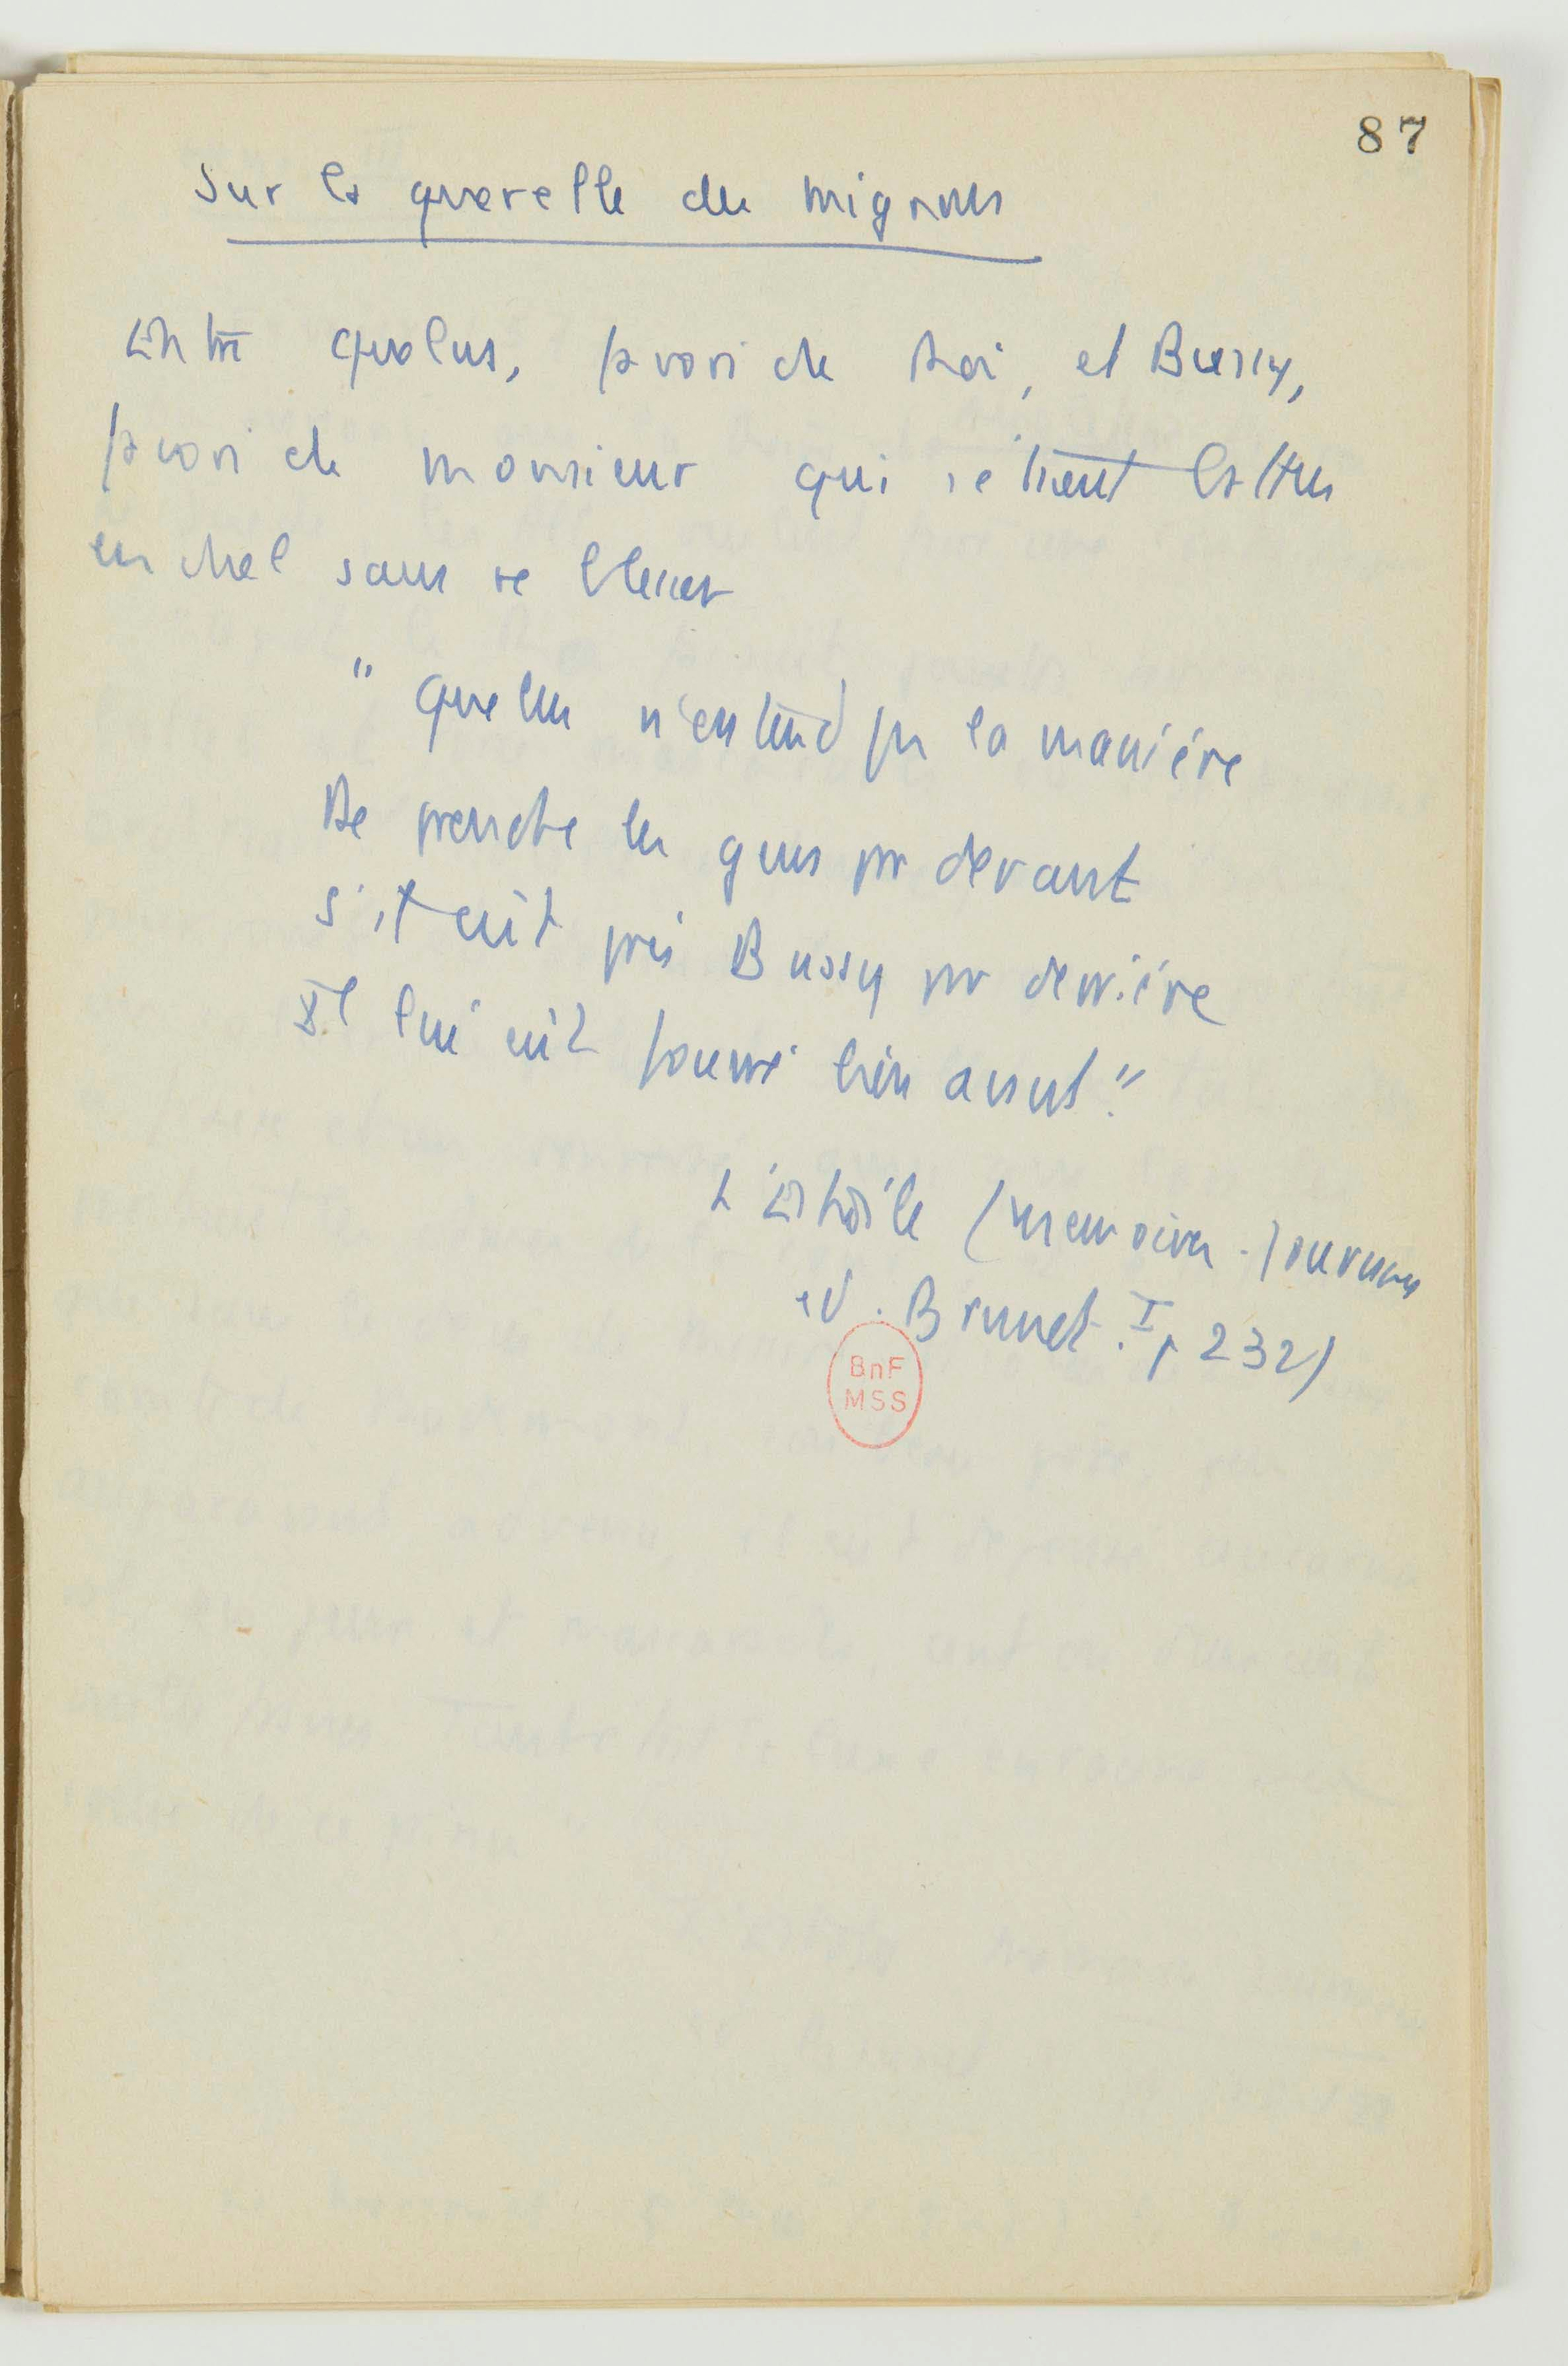 87
Sur la querelle des mignons
Entre Quelus, favori du Roi, et Bussy,
favori de Monsieur qui s'étaient battus
en duel sans se blesser
" Quelus n'entend pas la manière
De prendre les gens par devant
S'il eût pris Bussy par derrière
Il lui eût fourré bien avant."
L'Estoile (Memoires-Journaux
ed. Brunet. I, p 232)
BnF
MSS